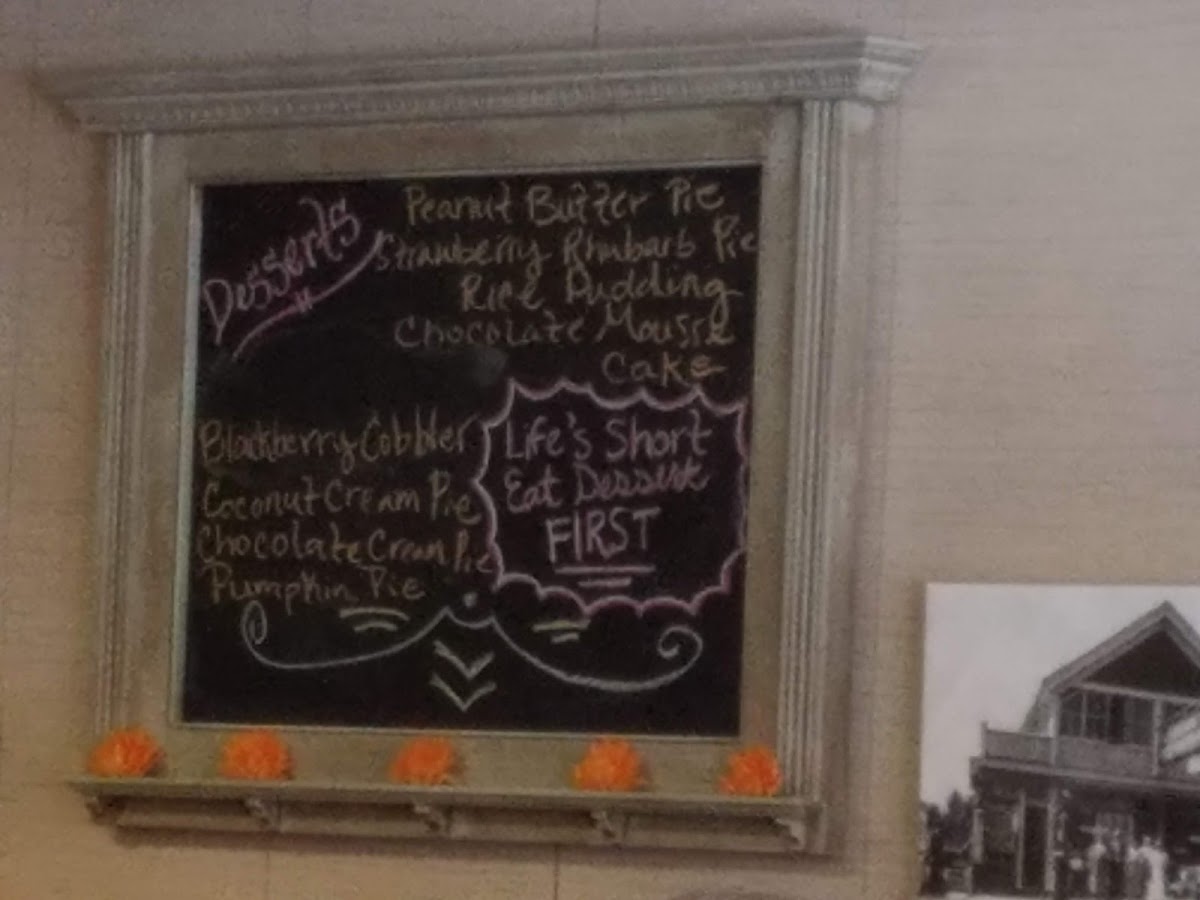 Desserts
Peanut Butter Pie
Strawberry Rhubarb Pie
Rice Pudding
Chocolate Mousse
Cake
Blackberry Cobbler
Coconut Cream Pie
Chocolate Cream Pie
Pumpkin Pie
Life's Short
Eat Dessert
FIRST